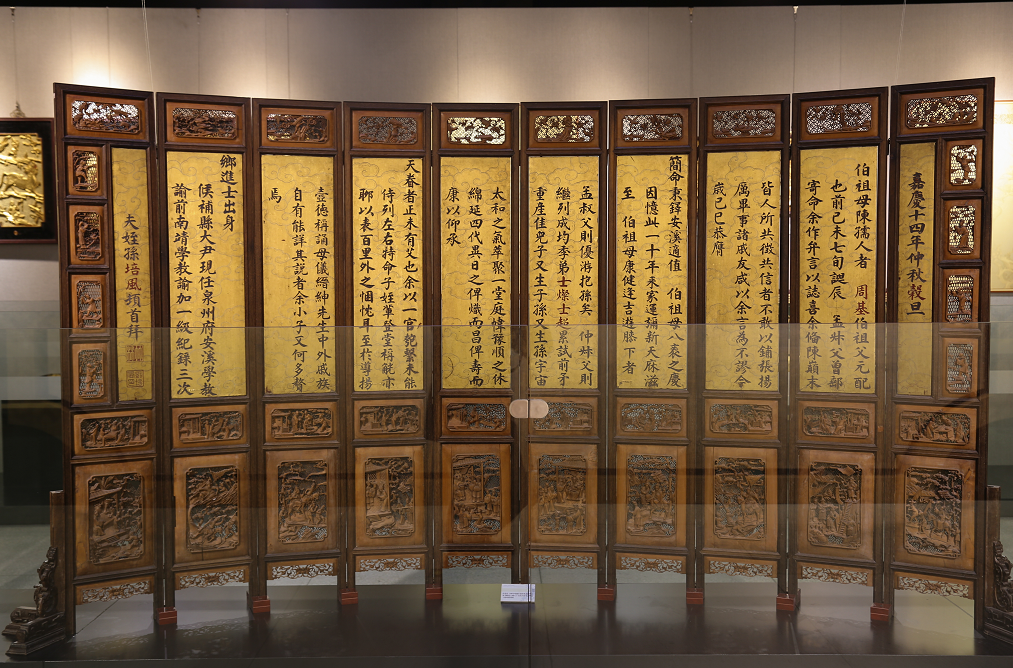 嘉慶十四年仲秋穀旦
伯祖母陳孺人者 周基伯祖父元配
也前己未七旬誕辰 孟叔父曾郵
寄命余作弁言以誌喜余僃陳顛末
皆人所共徵共信者不敢以鋪張揚
厲畢事諸戚友咸以余言為不謬今
歲己巳恭膺
簡命秉鐸安溪適值 伯祖母八袠之慶
因憶此一十年來家運彌新天庥滋
至 伯祖母康健逢吉遊膝下者
孟叔父則優游抱孫矣 仲叔父則
繼列成均季弟士燦士超累試前矛
重產佳兒子又生子孫又生孫宇宙
太和之氣萃聚一堂庭幃豫順之休
綿延四代異日之俾熾而昌俾壽而
康以仰承
天眷者正未有艾也余以一官匏繫未能
侍列左右持命子姪輩登堂稱觥亦
聊以表百里外之悃忱耳至於導揚
壼德稱誦母儀縉紳先生中外戚族
自有能詳其說者余小子又何多贅
焉
鄉進士出身
候補縣大尹現任泉州府安溪學教
諭前南靖學教諭加一級紀錄三次
夫姪孫培風頓首拜